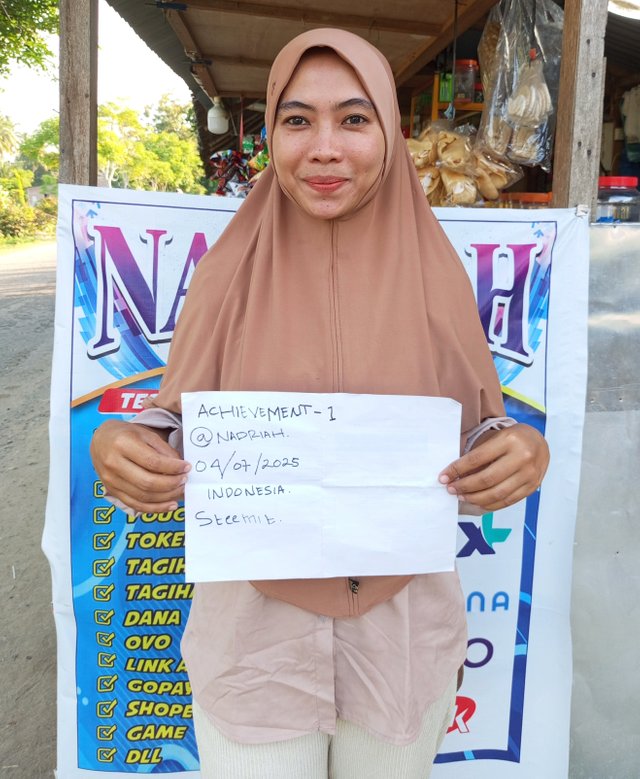 ACHIEVEMENT-1
@NADRIAH.
04/07/2025
INDONESIA.
Steemit.
TOKE
TAGIH
TAGIHA
DANA
OVO
LINK A
GOPAY
SHOPE
GAME
DLL